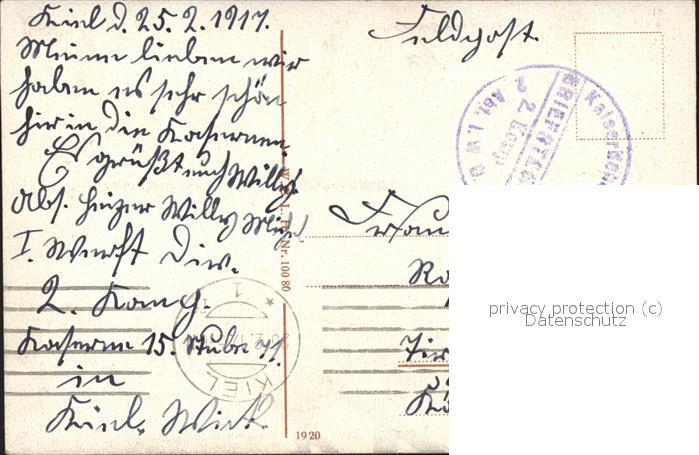 Kiel d. 25. 2. 1917.
Meine lieben wir
haben es sehr schön
hier in die Kasernen.
Es grüßt euch Willy.
Abs. Heizer Willy
I. Werft Div.
2. Komp.
Kaserne 15. Stube
in
Kiel, Wik.
Feldpost.
Kaiserliche
BRIEFSTEM
2 Komp
2 Abt. I. W. D
Frau
Ro
KIEL
1
W. & L., H. Nr. 100 80
1920
privacy protection (c)
Datenschutz